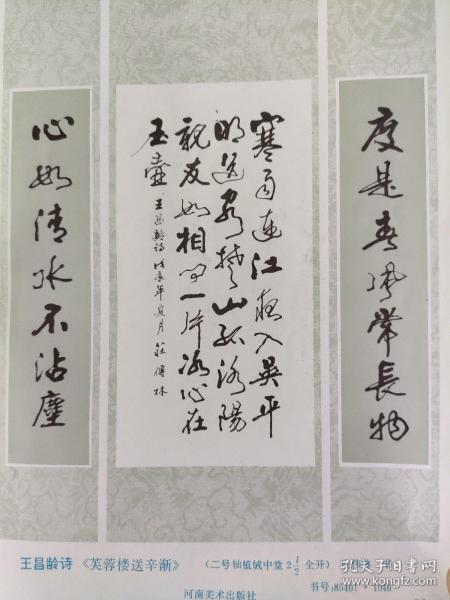 度是春風常長物
寒雨連江夜入吳平
明送客楚山孤洛陽
親友如相問一片冰心在
玉壺 王昌齡詩 戊辰年夏月 莊傳林
心如清水不沾塵
王昌龄诗 《芙蓉楼送辛渐》 （二号轴植绒中堂 2 1/2 全开）
河南美术出版社
书号:85401·1046
孔夫子旧书网